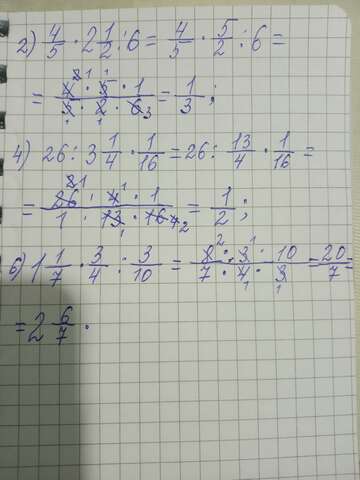 2) 4/5 · 2 1/2 : 6 = 4/5 · 5/2 : 6 =
= 4 · 5 · 1 / 5 · 2 · 6 = 1/3 ;
4) 26 : 3 1/4 · 1/16 = 26 : 13/4 · 1/16 =
= 26 · 4 · 1 / 1 · 13 · 16 = 1/2 ;
6) 1 1/7 · 3/4 : 3/10 = 8 · 3 · 10 / 7 · 4 · 3 = 20/7 =
= 2 6/7 .